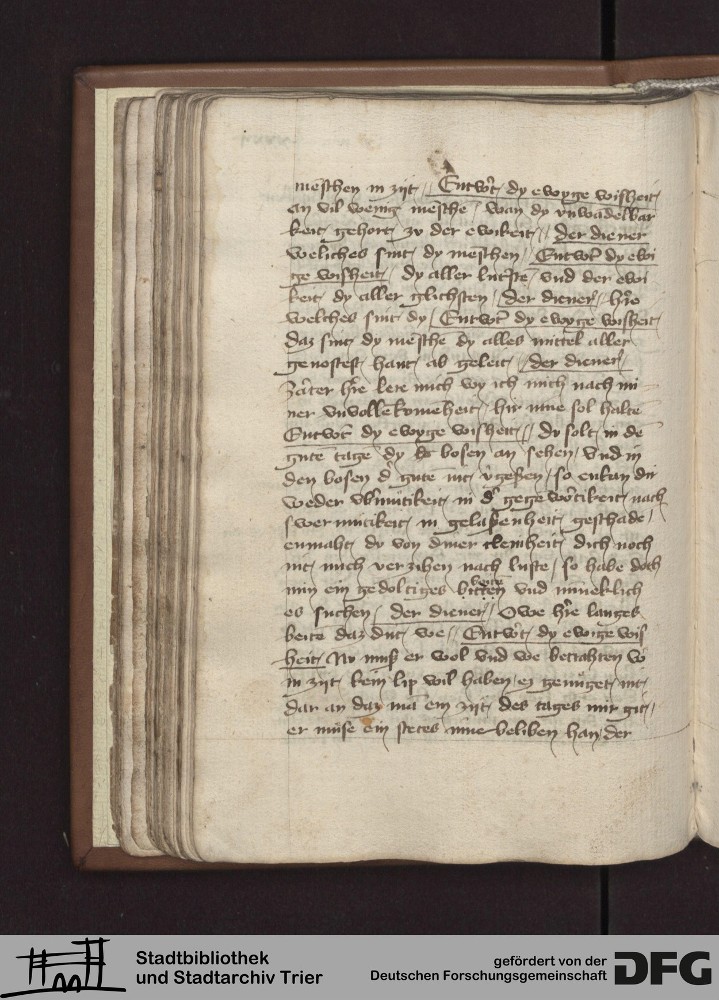 mēschen in zijt / Entwort dy ewyge wisheit
an vil wenig mēsche / wan dy vnwādelbar
keit gehort zu der ewikeit / der diener
weliches sint dy mēschen / Entwort dy ewi
ge wisheit / dy aller lutste vnd der ewi
keit dy aller glichsten / der diener / hre
welches sint dy / Entwort dy ewyge wisheit
daz sint dy mēsche dy alles mittel aller
genostest hant ab geleit / der diener /
zarter hre lere mich wy ich mich nach mi
ner vnvollekomeheit hir inne sol halte
Entwort dy ewyge wisheit / Dv solt in dē
gutē tage dy bosen an sehen / vnd in
den bosen d gutē nit vgeßen / so enkan dir
weder vbmutikeit in d gegēwortikeit / nach
swermutikeit in gelaßenheit geschade /
enmaht dv von diner cleinheit dich noch
nit mich verzihen nach luste / so habe doch
min ein gedoltiges beite vnd inneklich
es suchen / der diener / Owe hre langes
beite daz dut we / Entwort dy ewige wis
heit / Nv muß er wol vnd we betrahten
in zijt kein lip wil haben / ez genuget nit
dar an daz mā ein zijt des tages mir git /
er muse ein stetes inne beliben han / der
Stadtbibliothek
und Stadtarchiv Trier
gefördert von der
Deutschen Forschungsgemeinschaft
DFG